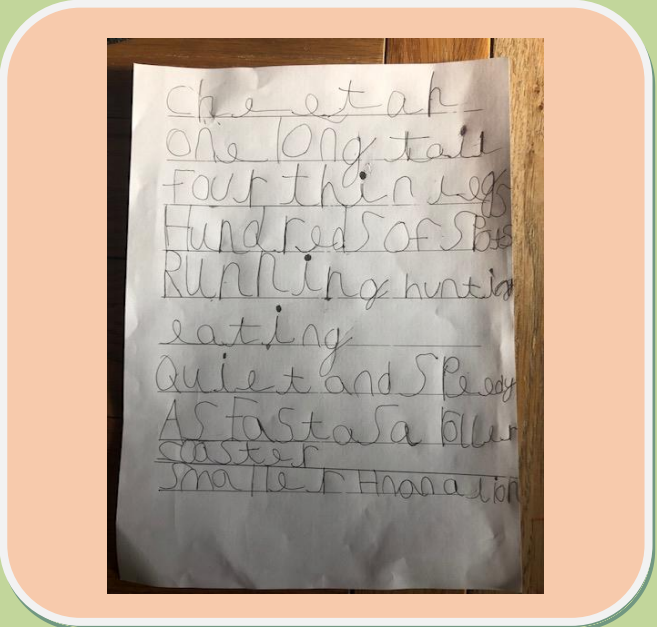 Cheetah
One long tail
Four thin legs
Hundreds of Spots
Running hunting
eating
Quiet and Speedy
As Fast as a roller
coaster
Smaller than a lion